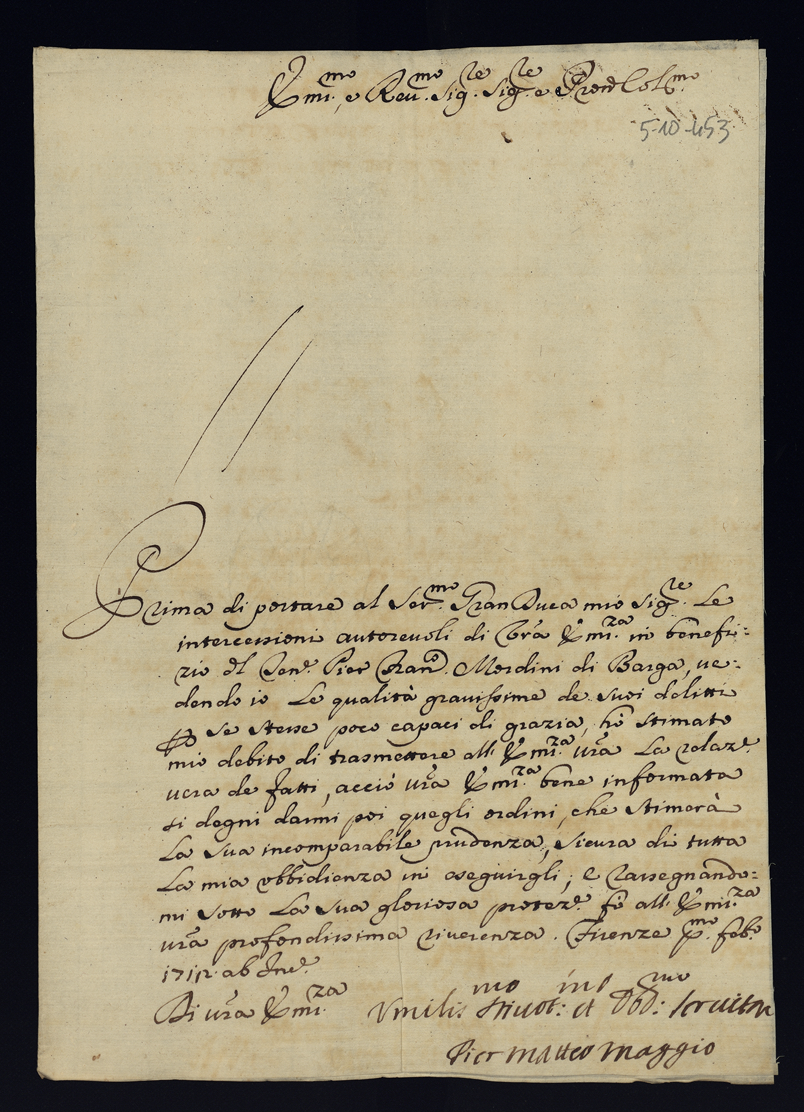 Em.mo e Reu.mo Sig.re Sig.re e Pron Col.mo
5-10-453
Prima di portare al Ser.mo Gran Duca mio Sig.re Le
intercessioni autoreuoli di Vra Em.za in benefi=
zio del Ten.e Pier Fran.o Mordini di Barga, ue=
dendo io Le qualità grauissime de suoi delitti
p se stesse poco capaci di grazia, hò stimato
mio debito di trasmettere all' Em.za ura La relaz.e
uera de fatti, acciò ura Em.za bene informata
si degni darmi poi quegli ordini, che stimerà
La sua incomparabile prudenza, sicura di tutta
La mia obbidienza in eseguirgli; e rassegnando=
mi sotto La sua gloriosa protez.e fò all' Em.za
ura profondissima riuerenza. Firenze p.mo feb.o
1712 ab Inc.e
Di ura Em.za Vmilis.mo Diuot:mo et Obb:mo seruitore
Pier Matteo Maggio